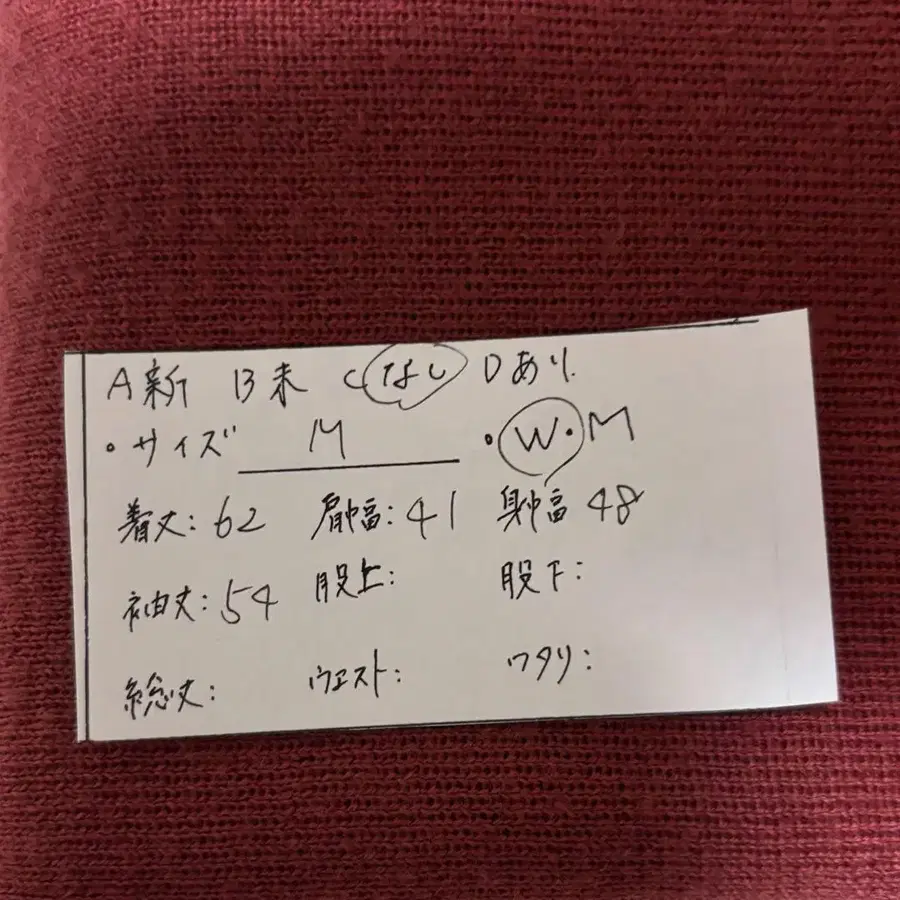 A新 B未 Cなし Dあり
・サイズ M ・W・M
着丈:62 肩幅:41 身幅 48
袖丈:54 股上: 股下:
総丈: ウエスト: ワタリ: